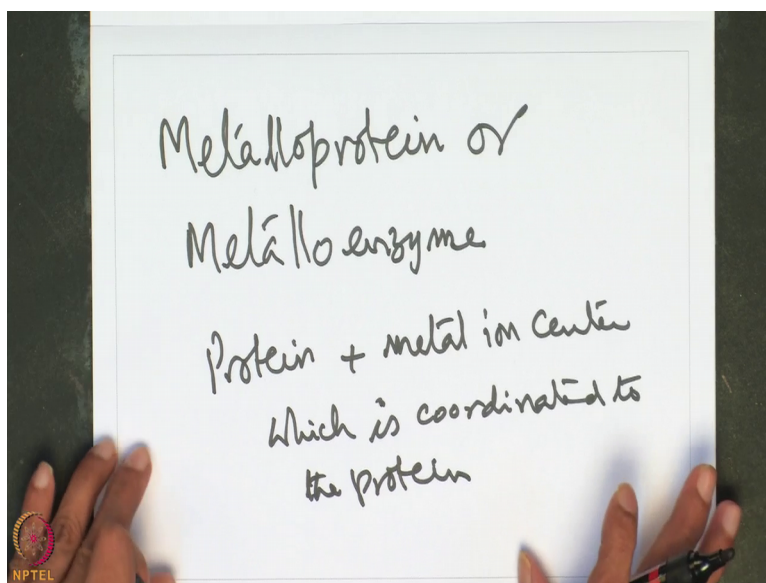 Metalloprotein or
Metallo enzyme
Protein + metal ion center
which is coordinated to
the protein
NPTEL